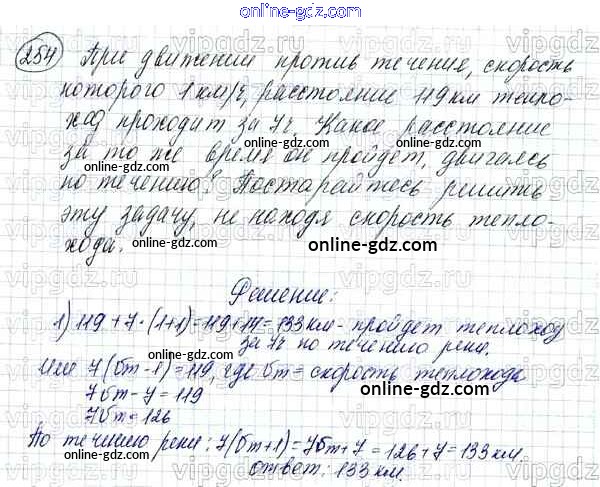 online-gdz.com
254 При движении против течения, скорость
которого 1 км/ч, расстояние 119 км тепло-
ход проходит за 7ч. Какое расстояние
за то же время он пройдет, двигаясь
по течению? Постарайтесь решить
эту задачу, не находя скорость тепло-
хода.
online-gdz.com
Решение:
1) 119+7·(1+1)=119+14=133 км - пройдет теплоход
за 7ч по течению реки.
Или 7(vт-1)=119, где vт= скорость теплохода
7vт-7=119
7vт=126
По течению реки: 7(vт+1)=7vт+7=126+7=133 км.
ответ: 133 км.
online-gdz.com